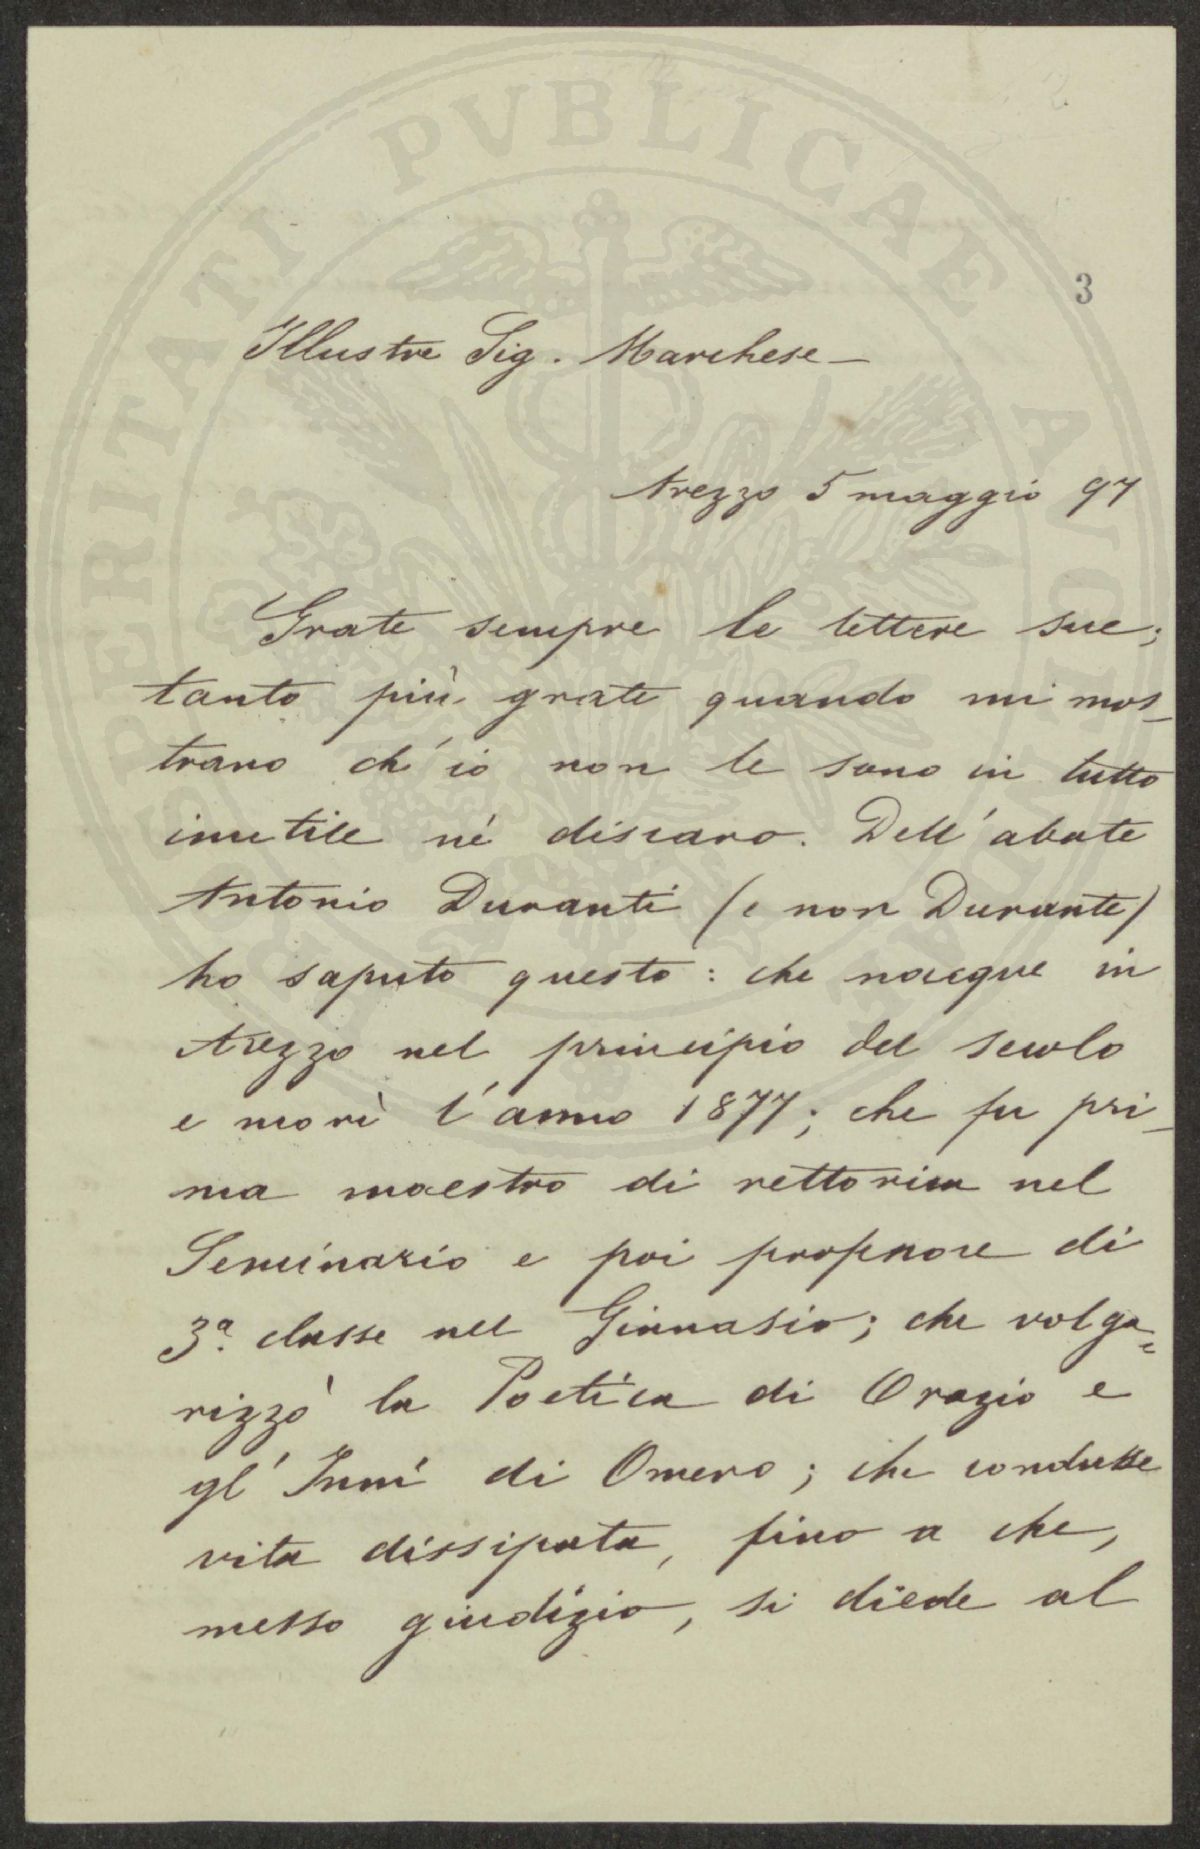 3
Illustre Sig. Marchese —
Arezzo 5 maggio 97
Grate sempre le lettere sue;
tanto più grate quando mi mos-
trano ch'io non le sono in tutto
inutile né discaro. Dell'abate
Antonio Duranti (e non Durante)
ho saputo questo: che nacque in
Arezzo nel principio del secolo
e morì l'anno 1877; che fu pri-
ma maestro di rettorica nel
Seminario e poi professore di
3ª. classe nel Ginnasio; che volga=
rizzò la Poetica di Orazio e
gl'Inni di Omero; che condusse
vita dissipata, fino a che,
messo giudizio, si diede al
PROSPERITATI PVBLICAE